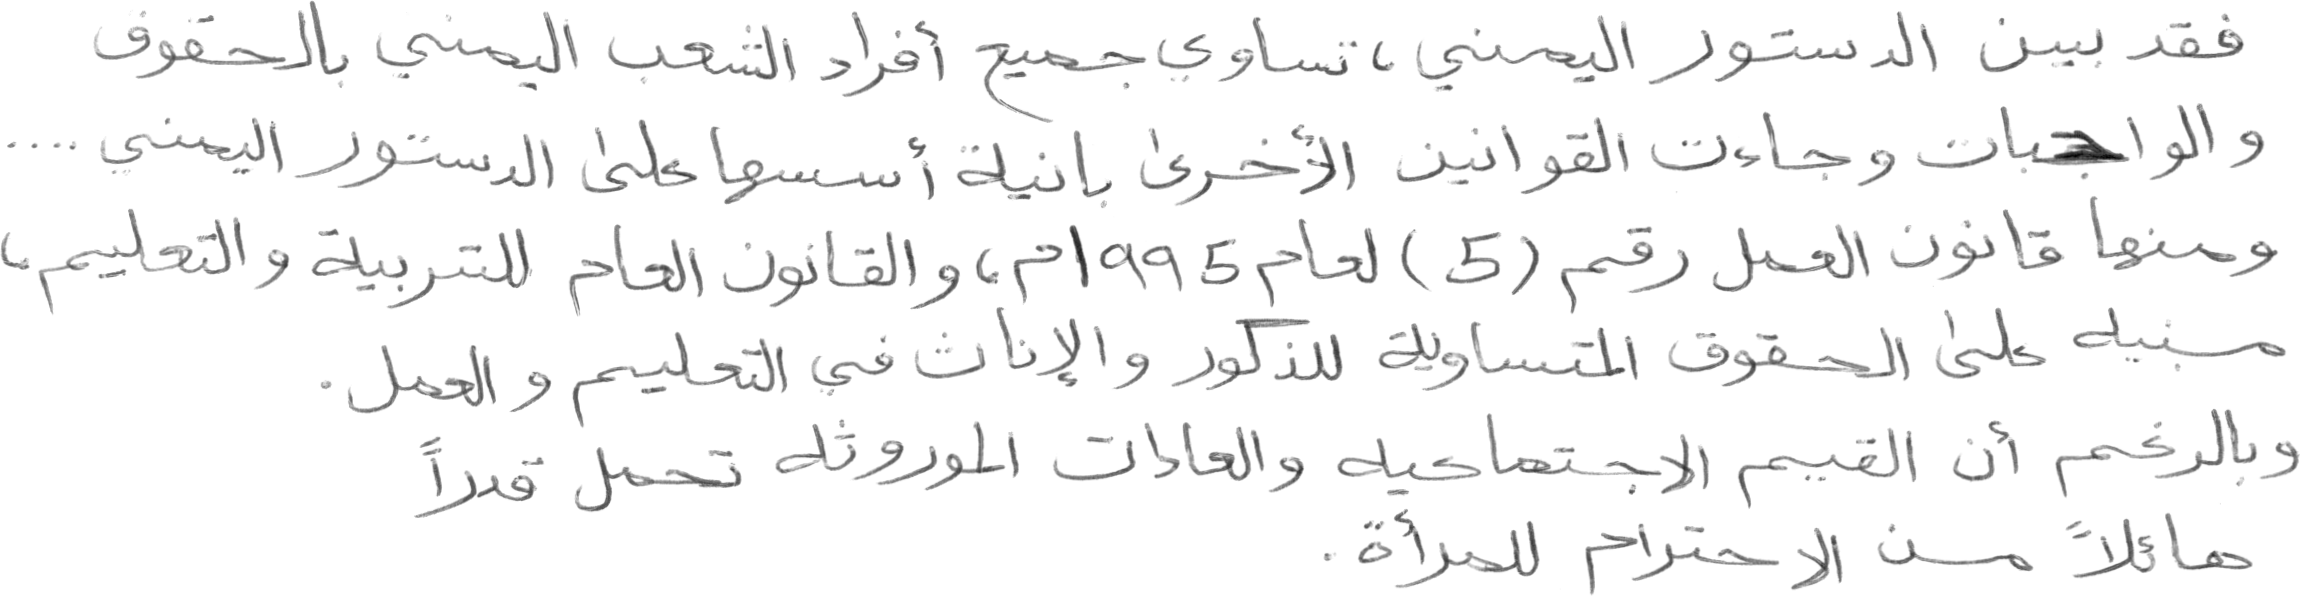 فقد بين الدستور اليمني، تساوي جميع أفراد الشعب اليمني بالحقوق
والواجبات وجاءت القوانين الأخرى بانية أسسها على الدستور اليمني ....
ومنها قانون العمل رقم (5) لعام 1995م، والقانون العام للتربية والتعليم،
مبنيه على الحقوق المتساوية للذكور والإناث في التعليم والعمل.
وبالرغم أن القيم الاجتماعيه والعادات الموروثه تحمل قدراً
هائلاً من الاحترام للمرأة.